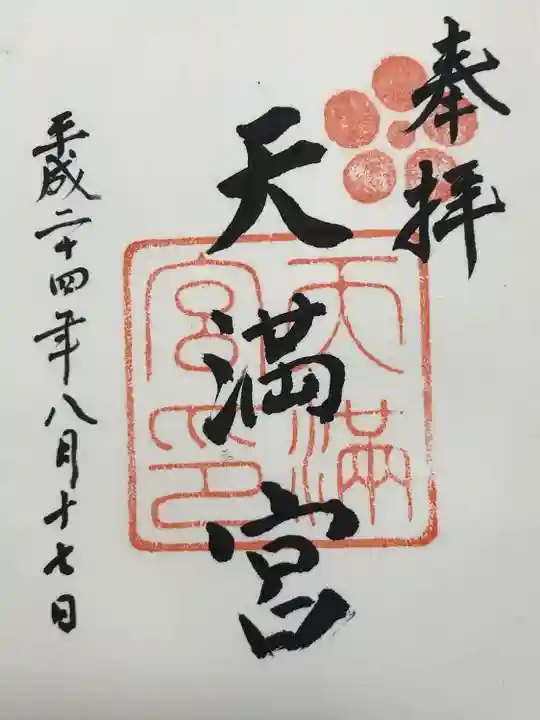 奉拝
天満宮
天満
宮印
平成二十四年八月十七日